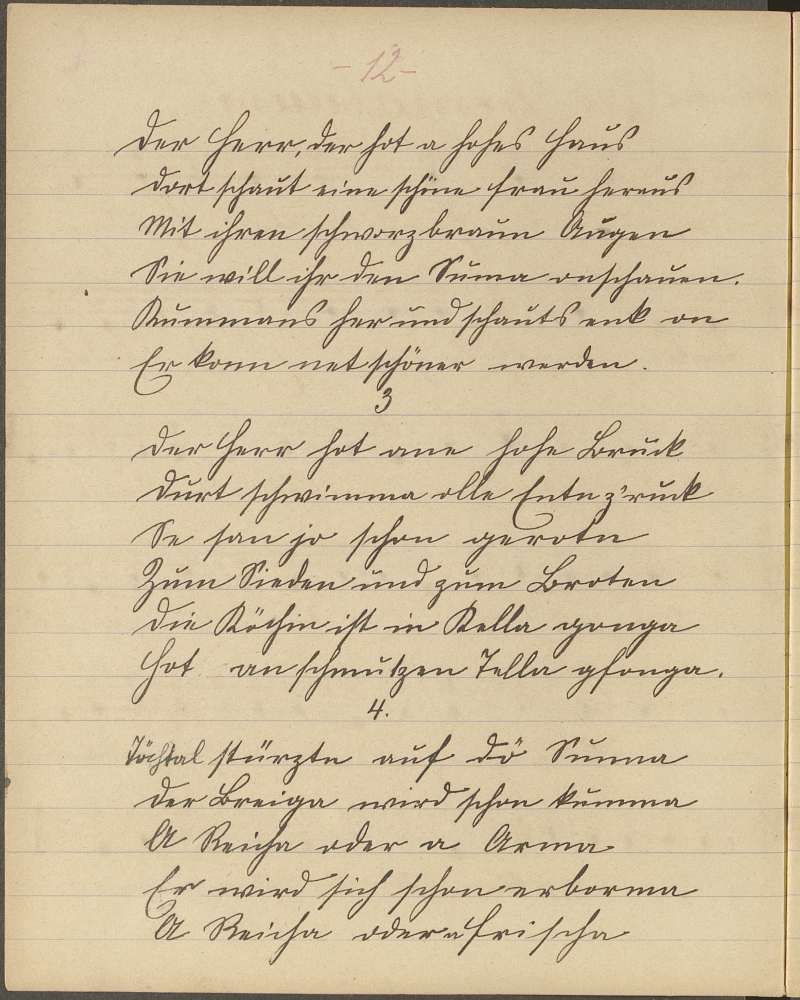 - 12 -
Der Herr, der hot a hohes Haus
Dort schaut eine schöne Frau heraus
Mit ihren schworzbraun Augen
Sie will ihr den Suma onschauen.
Kummans her und schauts enk on
Er konn net schöner werden.
3
Der Herr hot ane hohe Bruck
Durt schwimma olle Entn z'ruck
Se san jo schon gerotn
Zum Sieden und zum Broten
Die Köchin ist in Kella gonga
Hot an schmutzen Tella gfonga.
4.
Töchtal stürzte auf dö Sunna
Der Breiga wird schon kumma
A Reicha oder a Arma
Er wird sich schon erborma
A Reicha oder a frischa